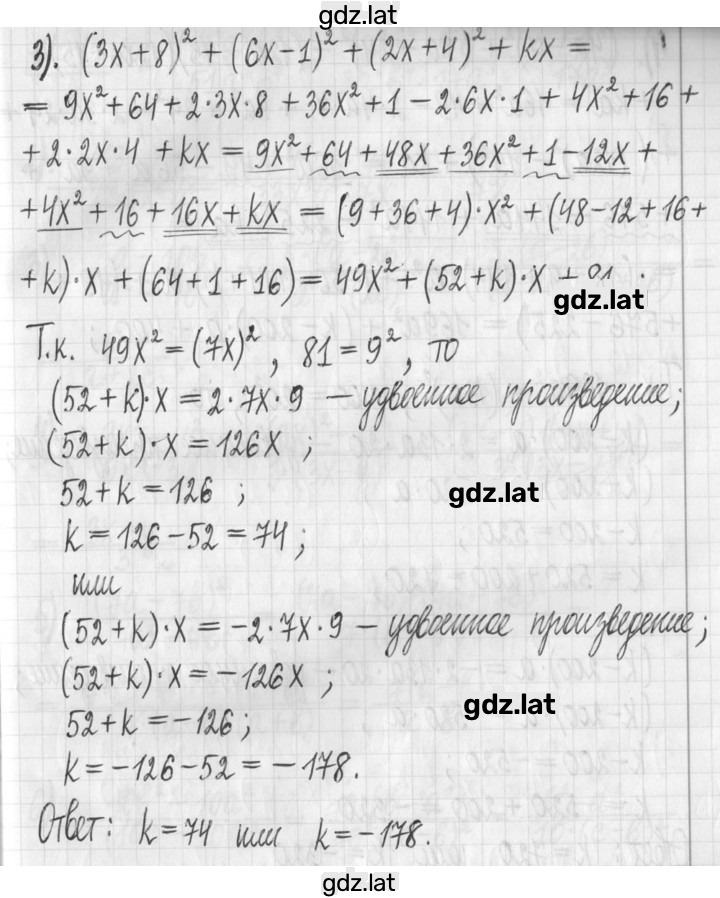 gdz.lat
3). (3x+8)² + (6x-1)² + (2x+4)² + kx =
= 9x² + 64 + 2·3x·8 + 36x² + 1 - 2·6x·1 + 4x² + 16 +
+ 2·2x·4 + kx = 9x² + 64 + 48x + 36x² + 1 - 12x +
+ 4x² + 16 + 16x + kx = (9+36+4)·x² + (48-12+16+
+k)·x + (64+1+16) = 49x² + (52+k)·x + 81
gdz.lat
Т.к. 49x² = (7x)², 81 = 9², то
(52+k)·x = 2·7x·9 – удвоенное произведение;
(52+k)·x = 126x ;
52+k = 126 ;
gdz.lat
k = 126-52 = 74 ;
или
(52+k)·x = -2·7x·9 – удвоенное произведение;
(52+k)·x = -126x ;
gdz.lat
52+k = -126;
k = -126-52 = -178.
Ответ: k=74 или k=-178.
gdz.lat